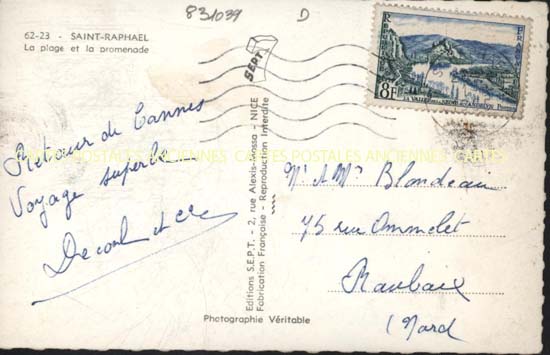 831039 D
62-23 - SAINT-RAPHAEL
La plage et la promenade
SEPT
REPUBLIQUE FRANÇAISE
8F
LA VALLÉE DE LA SEINE AUX ANDELYS Postes
Retour de Cannes
Voyage superbe
CARTES POSTALES ANCIENNES CARTES POSTALES ANCIENNES CARTES
Editions S.E.P.T. - 2, rue Alexis-Mossa - NICE
Fabrication Française - Reproduction Interdite
Photographie Véritable
Mr & Mme Blondeau
75 rue Ommelet
Roubaix
(Nord)